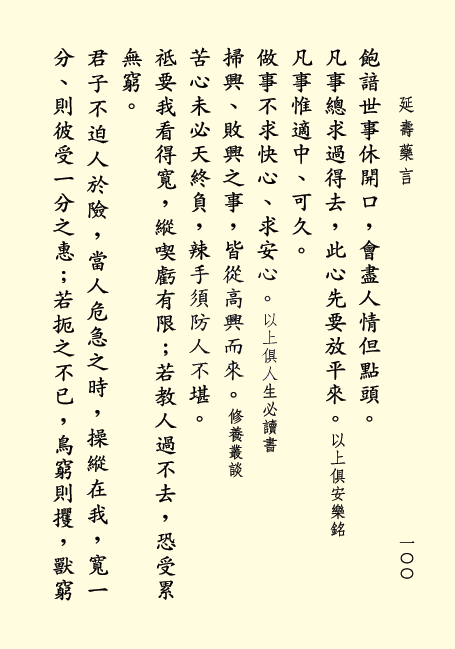 延壽藥言
一〇〇
飽諳世事休開口，會盡人情但點頭。
凡事總求過得去，此心先要放平來。以上俱安樂銘
凡事惟適中、可久。
做事不求快心、求安心。以上俱人生必讀書
掃興、敗興之事，皆從高興而來。修養叢談
苦心未必天終負，辣手須防人不堪。
祗要我看得寬，縱喫虧有限；若教人過不去，恐受累
無窮。
君子不迫人於險，當人危急之時，操縱在我，寬一
分、則彼受一分之惠；若扼之不已，鳥窮則攫，獸窮